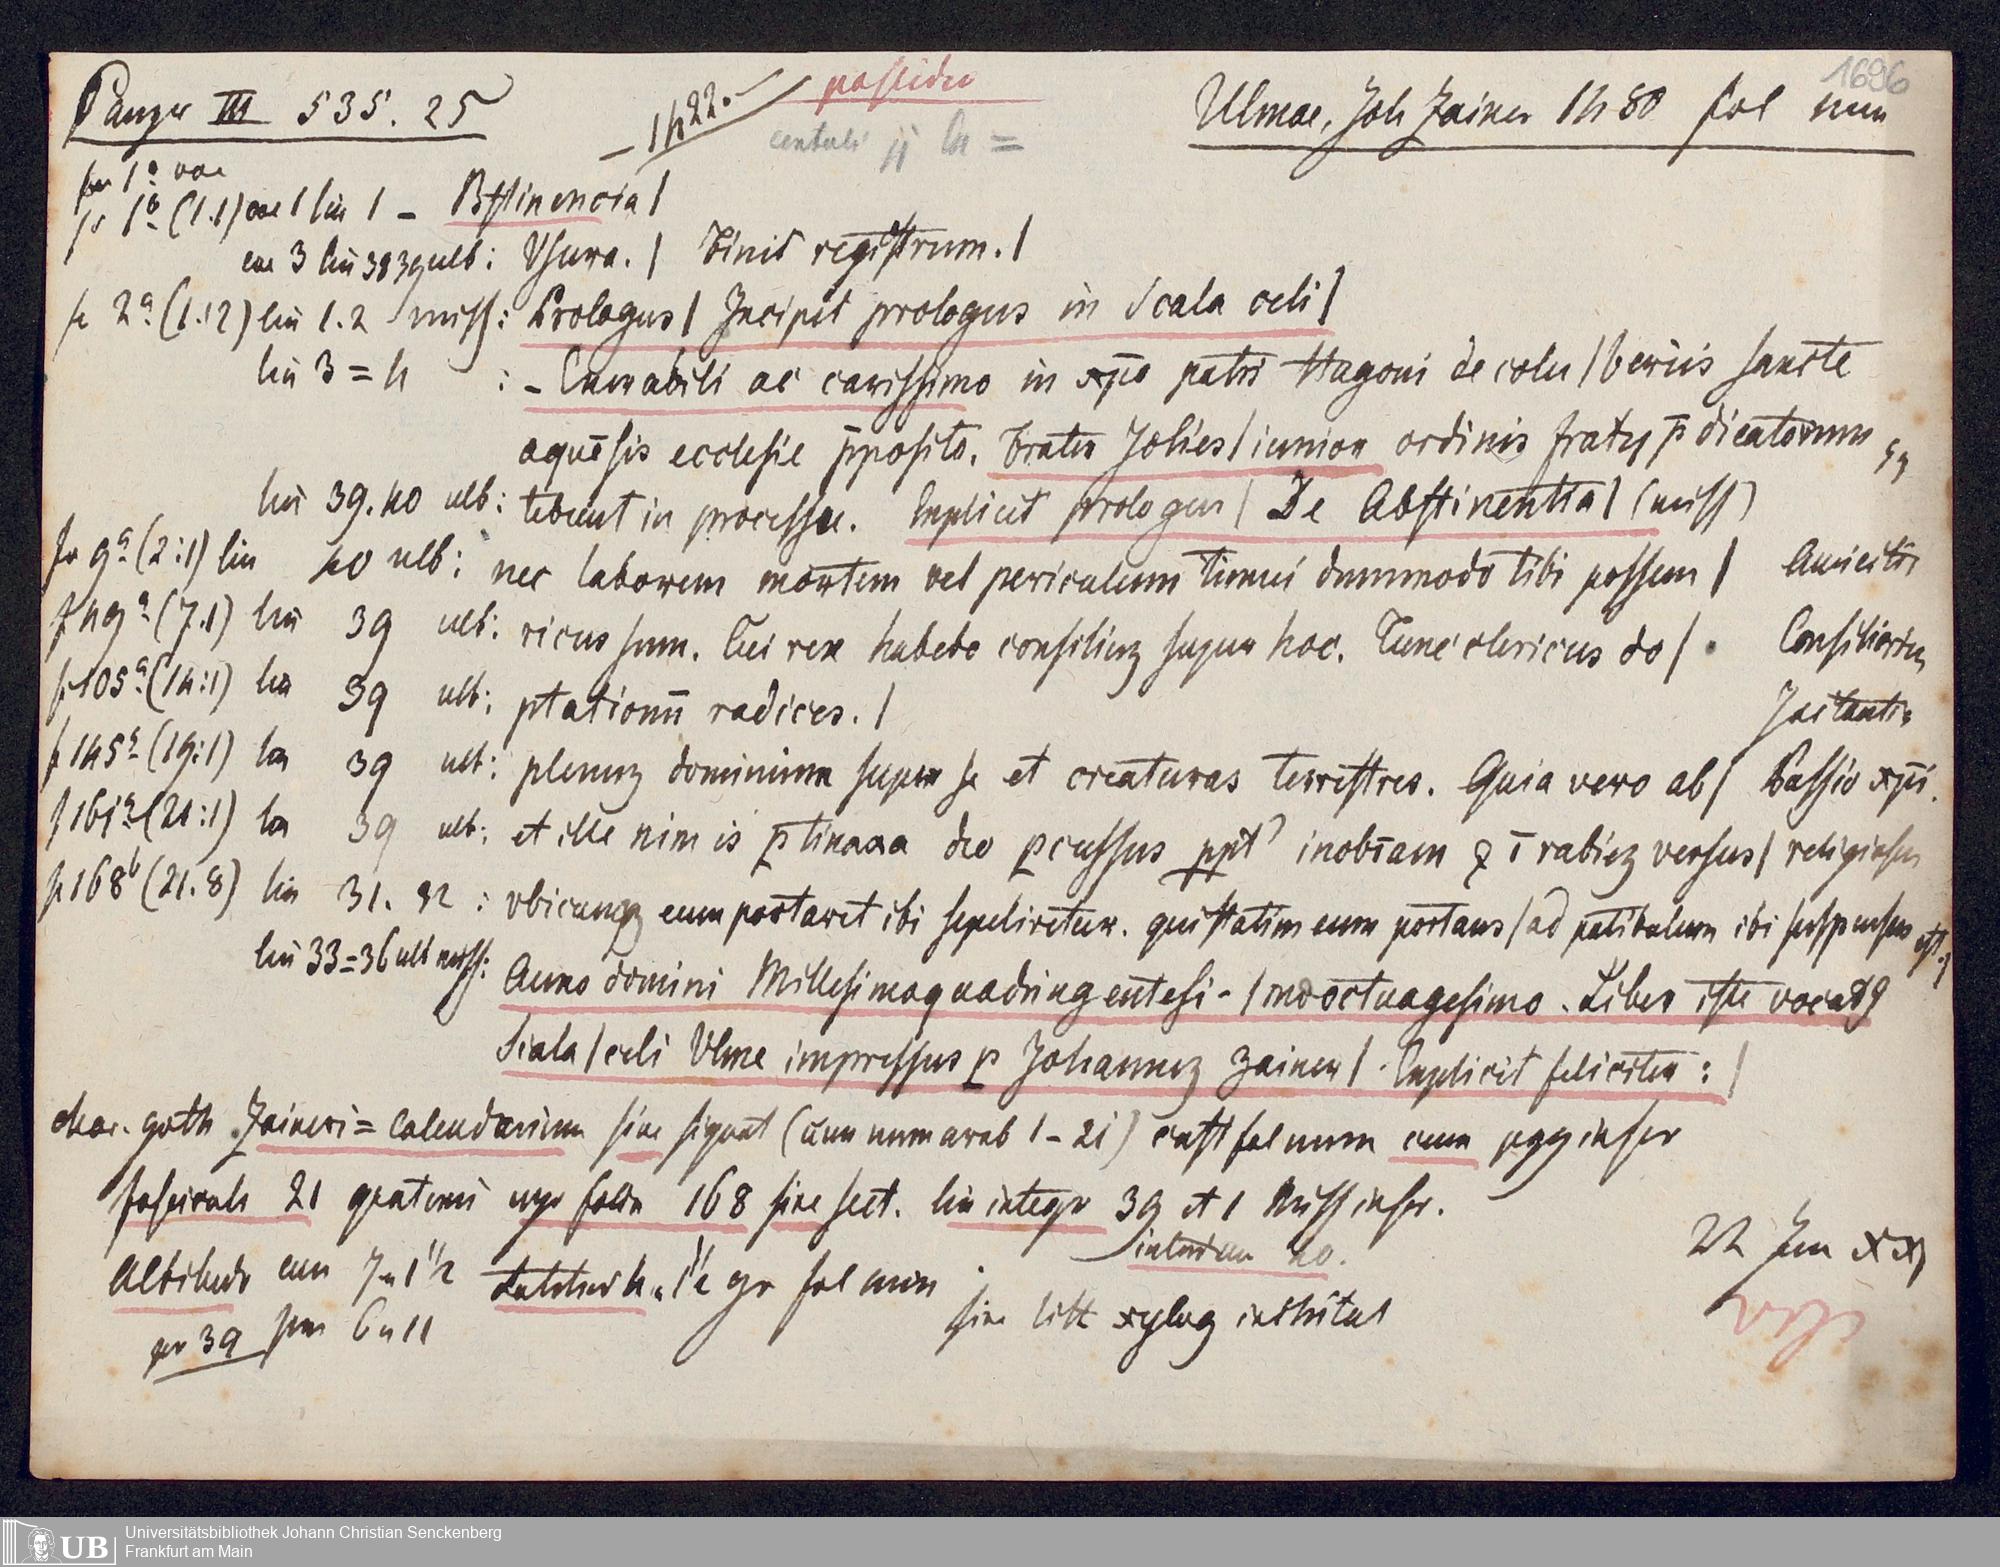 1696
Panzer III 535. 25
1422.-
possideo
Ulmae, Joh Zainer 1480 fol min
fo 1a vac
fo 1b (1.1) col 1 lin 1 - Bstinencia |
col 3 lin 38 39 ult: Vsura. | Finit registrum. |
fo 2a (1.12) lin 1.2 miss: Prologus | Incipit prologus in Scala celi |
lin 3 = 4 : - Enerabili ac carissimo in xp̄o patri Hugoni de colu | beriis sancte
aquēsis ecclesie p̄posito. Frater Johēs | iunior ordinis fratrꝝ p̄dicatorum
lin 39.40 ult: tebunt in processu. Explicit prologus | De Abstinentia | (miss)
fo 9a (2:1) lin 40 ult: nec laborem mortem vel periculum timui dummodo tibi possem | Amicitia
f 49a (7.1) lin 39 ult: ricus sum. Cui rex habebo consiliuꝫ super hoc. Tunc clericus do | Consiliarius
f 105a (14:1) lin 39 ult: ptationū radices. | Jactantia
f 145a (19:1) lin 39 ult: plenuꝫ dominium super se et creaturas terrestres. Quia vero ab | Passio xp̄i.
f 161a (21:1) lin 39 ult: et ille nimis ꝑtinax a deo ꝑcussus ꝓpt' inobīam ꝛ ī rabieꝫ versus | religiosus
fo 168b (21.8) lin 31. 32 : vbicunqꝫ eum portaret ibi sepeliretur. qui statim eum portans | ad patibulum ibi suspensus est. |
lin 33=36 ult miss: Anno domini Millesimoquadringentesi- | mooctuagesimo. Liber iste vocatꝰ
Scala | celi Vlme impressus ꝑ Johanneꝫ zainer | Explicit feliciter: |
char. goth Zaineri = Calendarium sine signat (cum num arab 1 - 21) cust fol num cum
fascicul 21 quaterni folia 168 sine sect. lin integr 39 et 1 miss infer.
interdum 40.
Altitudo cum 7 " 1½ Latitud 4 " 1½ gr fol min
22 Jun xx
sine litt xylog initital
pro 39 6 " 11
Universitätsbibliothek Johann Christian Senckenberg
Frankfurt am Main
UB